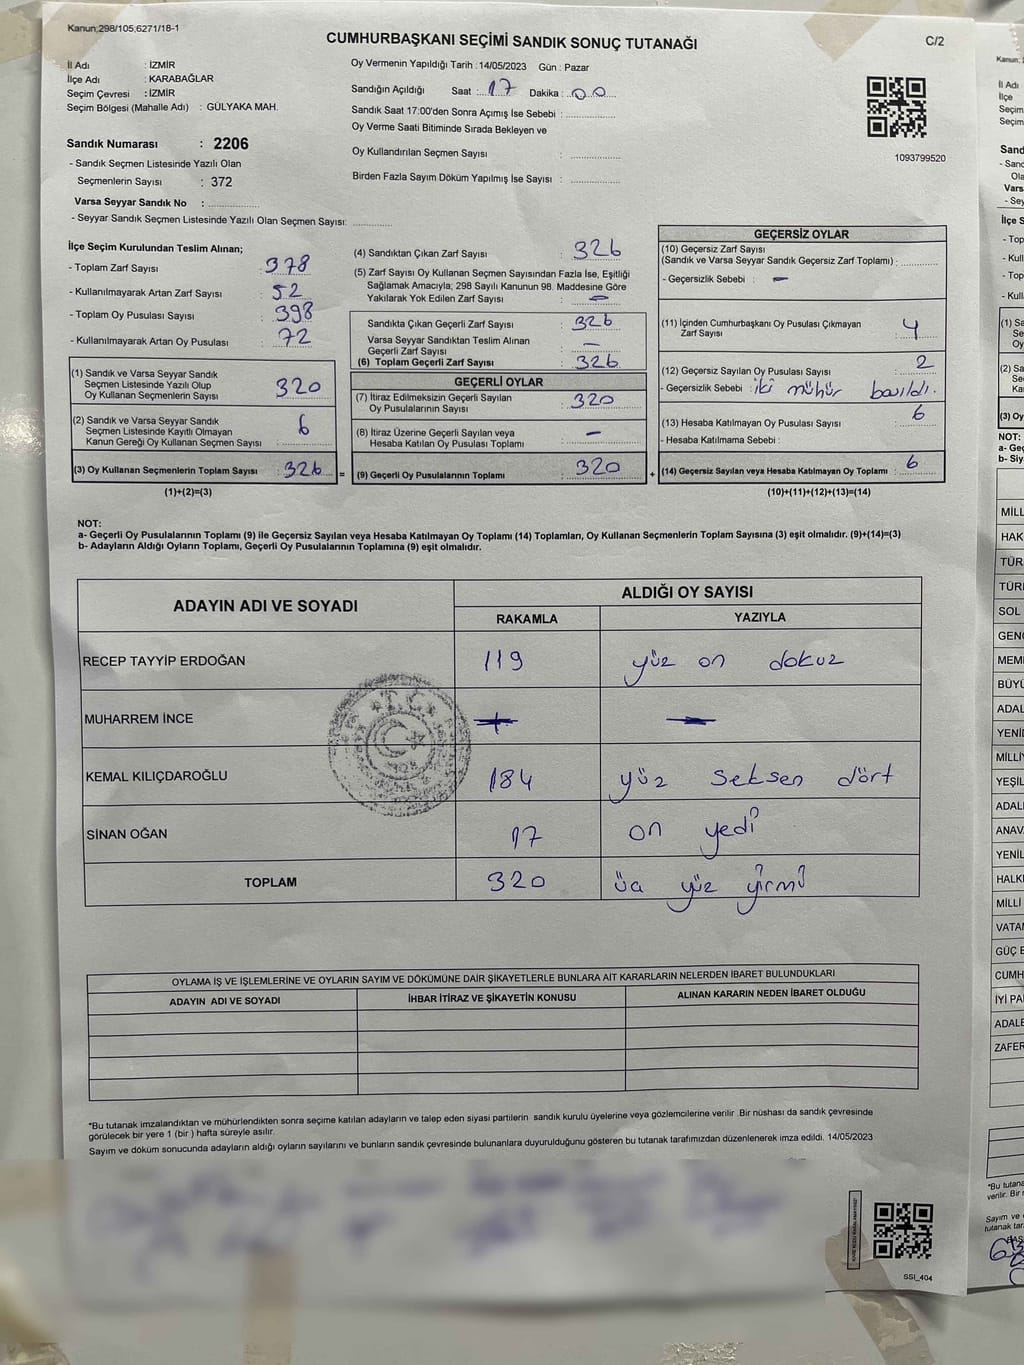 Kanun;298/105;6271/18-1
CUMHURBAŞKANI SEÇİMİ SANDIK SONUÇ TUTANAĞI
C/2
İl Adı : İZMİR
İlçe Adı : KARABAĞLAR
Seçim Çevresi : İZMİR
Seçim Bölgesi (Mahalle Adı) : GÜLYAKA MAH.
Oy Vermenin Yapıldığı Tarih : 14/05/2023 Gün : Pazar
Sandığın Açıldığı Saat : 17 Dakika : 00
Sandık Saat 17:00'den Sonra Açımış İse Sebebi :
Oy Verme Saati Bitiminde Sırada Bekleyen ve
Oy Kullandırılan Seçmen Sayısı :
Birden Fazla Sayım Döküm Yapılmış İse Sayısı :
1093799520
Sandık Numarası : 2206
- Sandık Seçmen Listesinde Yazılı Olan
Seçmenlerin Sayısı : 372
Varsa Seyyar Sandık No :
- Seyyar Sandık Seçmen Listesinde Yazılı Olan Seçmen Sayısı:
İlçe Seçim Kurulundan Teslim Alınan;
- Toplam Zarf Sayısı : 378
- Kullanılmayarak Artan Zarf Sayısı : 52
- Toplam Oy Pusulası Sayısı : 398
- Kullanılmayarak Artan Oy Pusulası : 72
(1) Sandık ve Varsa Seyyar Sandık
Seçmen Listesinde Yazılı Olup
Oy Kullanan Seçmenlerin Sayısı : 320
(2) Sandık ve Varsa Seyyar Sandık
Seçmen Listesinde Kayıtlı Olmayan
Kanun Gereği Oy Kullanan Seçmen Sayısı : 6
(3) Oy Kullanan Seçmenlerin Toplam Sayısı : 326
(1)+(2)=(3)
(4) Sandıktan Çıkan Zarf Sayısı : 326
(5) Zarf Sayısı Oy Kullanan Seçmen Sayısından Fazla İse, Eşitliği
Sağlamak Amacıyla; 298 Sayılı Kanunun 98. Maddesine Göre
Yakılarak Yok Edilen Zarf Sayısı : –
Sandıkta Çıkan Geçerli Zarf Sayısı : 326
Varsa Seyyar Sandıktan Teslim Alınan
Geçerli Zarf Sayısı : –
(6) Toplam Geçerli Zarf Sayısı : 326
GEÇERLİ OYLAR
(7) İtiraz Edilmeksizin Geçerli Sayılan
Oy Pusulalarının Sayısı : 320
(8) İtiraz Üzerine Geçerli Sayılan veya
Hesaba Katılan Oy Pusulası Toplamı : –
= (9) Geçerli Oy Pusulalarının Toplamı : 320 +
GEÇERSİZ OYLAR
(10) Geçersiz Zarf Sayısı
(Sandık ve Varsa Seyyar Sandık Geçersiz Zarf Toplamı) :
- Geçersizlik Sebebi : –
(11) İçinden Cumhurbaşkanı Oy Pusulası Çıkmayan
Zarf Sayısı : 4
(12) Geçersiz Sayılan Oy Pusulası Sayısı : 2
- Geçersizlik Sebebi : iki mühür basıldı.
(13) Hesaba Katılmayan Oy Pusulası Sayısı : 6
- Hesaba Katılmama Sebebi :
(14) Geçersiz Sayılan veya Hesaba Katılmayan Oy Toplamı : 6
(10)+(11)+(12)+(13)=(14)
NOT:
a- Geçerli Oy Pusulalarının Toplamı (9) ile Geçersiz Sayılan veya Hesaba Katılmayan Oy Toplamı (14) Toplamları, Oy Kullanan Seçmenlerin Toplam Sayısına (3) eşit olmalıdır. (9)+(14)=(3)
b- Adayların Aldığı Oyların Toplamı, Geçerli Oy Pusulalarının Toplamına (9) eşit olmalıdır.
ADAYIN ADI VE SOYADI
ALDIĞI OY SAYISI
RAKAMLA YAZIYLA
RECEP TAYYİP ERDOĞAN 119 yüz on dokuz
MUHARREM İNCE
KEMAL KILIÇDAROĞLU 184 yüz seksen dört
SİNAN OĞAN 17 on yedi
TOPLAM 320 üç yüz yirmi
T.C.
OYLAMA İŞ VE İŞLEMLERİNE VE OYLARIN SAYIM VE DÖKÜMÜNE DAİR ŞİKAYETLERLE BUNLARA AİT KARARLARIN NELERDEN İBARET BULUNDUKLARI
ADAYIN ADI VE SOYADI İHBAR İTİRAZ VE ŞİKAYETİN KONUSU ALINAN KARARIN NEDEN İBARET OLDUĞU
*Bu tutanak imzalandıktan ve mühürlendikten sonra seçime katılan adayların ve talep eden siyasi partilerin sandık kurulu üyelerine veya gözlemcilerine verilir .Bir nüshası da sandık çevresinde
görülecek bir yere 1 (bir ) hafta süreyle asılır.
Sayım ve döküm sonucunda adayların aldığı oyların sayılarını ve bunların sandık çevresinde bulunanlara duyurulduğunu gösteren bu tutanak tarafımızdan düzenlenerek imza edildi. 14/05/2023
SSI_404
Kanun;
İl Adı
İlçe
Seçim
Seçim
Sand
Vars
İlçe S
- Top
- Kull
- Top
- Kull
NOT:
a- Geç
b- Siy
MİLL
HAK
TÜR
TÜRİ
SOL
GENÇ
MEM
BÜYÜ
ADAL
YENİD
MİLLİY
YEŞİL
ADALE
ANAV
YENİL
HALKI
MİLLİ
VATAN
GÜÇ B
CUMH
İYİ PA
ADALE
ZAFER
*Bu tutana
verilir. Bir n
Sayım ve
tutanak tar